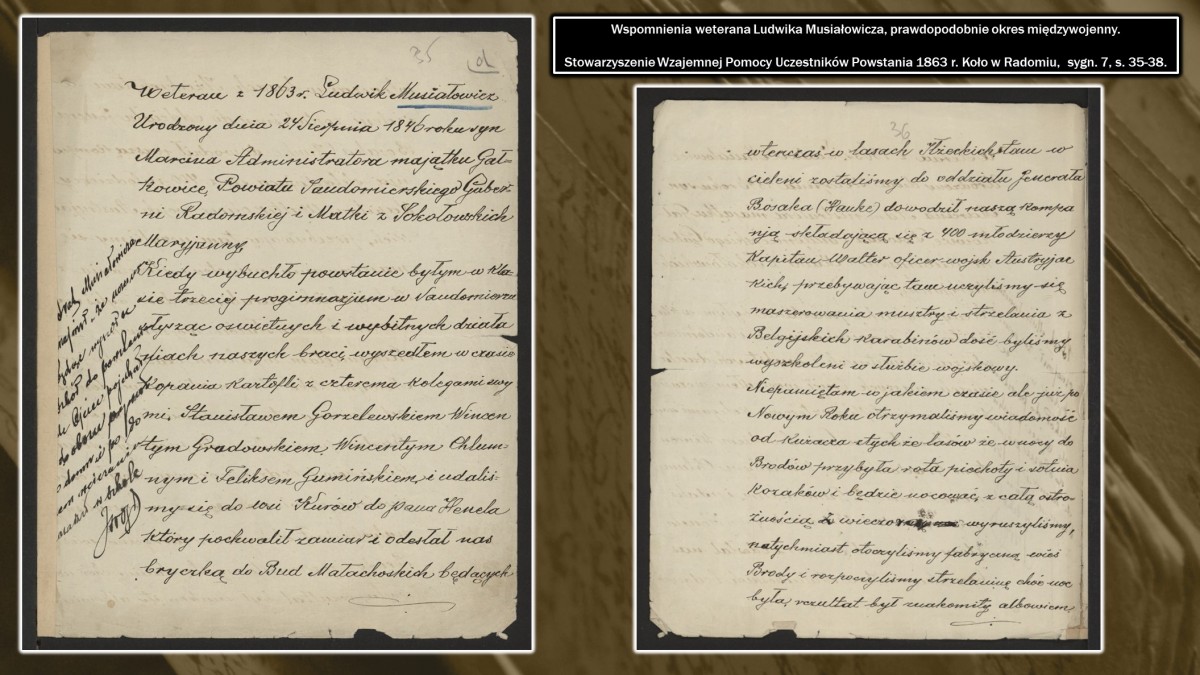 Wspomnienia weterana Ludwika Musiałowicza, prawdopodobnie okres międzywojenny.
Stowarzyszenie Wzajemnej Pomocy Uczestników Powstania 1863 r. Koło w Radomiu, sygn. 7, s. 35-38.
35
Weteran z 1863 r. Ludwik Musiałowicz
Urodzony dnia 24 Sierpnia 1846 roku syn
Marcina Administratora majątku Gał-
kowice, Powiatu Sandomierskiego Guber-
ni Radomskiej i Matki z Sokołowskich
Maryjanny,
Kiedy wybuchło powstanie byłym w kla-
sie trzeciej progimnazjum w Sandomierzu
słysząc o świetnych i wybitnych działa
niach naszych braci, wyszedłem w czasie
kopania kartofli z czterema kolegami swy
mi, Stanisławem Gorzelewskiem Wincen
tym Gradowskiem, Wincentym Chlum-
nym i Feliksem Gumińskiem, i udaliś-
my się do wsi Kurów do pana Henela
który pochwalił zamiar i odesłał nas
bryczką do Bud Małachoskich będących
Musiałowicz
że
do
do domu i po
w szkole
36
wtenczas w lasach Iłżeckich, tam w
cieleni zostaliśmy do oddziału Jenerała
Bosaka (Hauke) dowodził naszą kompa
nją składającą się z 400 młodzierzy
Kapitan Walter oficer wojsk Austryjac
kich, przebywając tam uczyliśmy się
maszerowania musztry i strzelania z
Belgijskich karabinów dość byliśmy
wyszkoleni w służbie wojskowy.
Niepamiętam w jakiem czasie ale już po
Nowym Roku otrzymaliśmy wiadomość
od Kuracca z tych że lasów że w nocy do
Brodów przybyła rota piechoty i sotnia
kozaków i będzie nocować, z całą ostro-
żnością wieczorem wyruszyliśmy,
natychmiast otoczyliśmy fabryczną wieś
Brody i rozpoczyliśmy strzelaninę choć noc
była, rezultat był znakomity albowiem